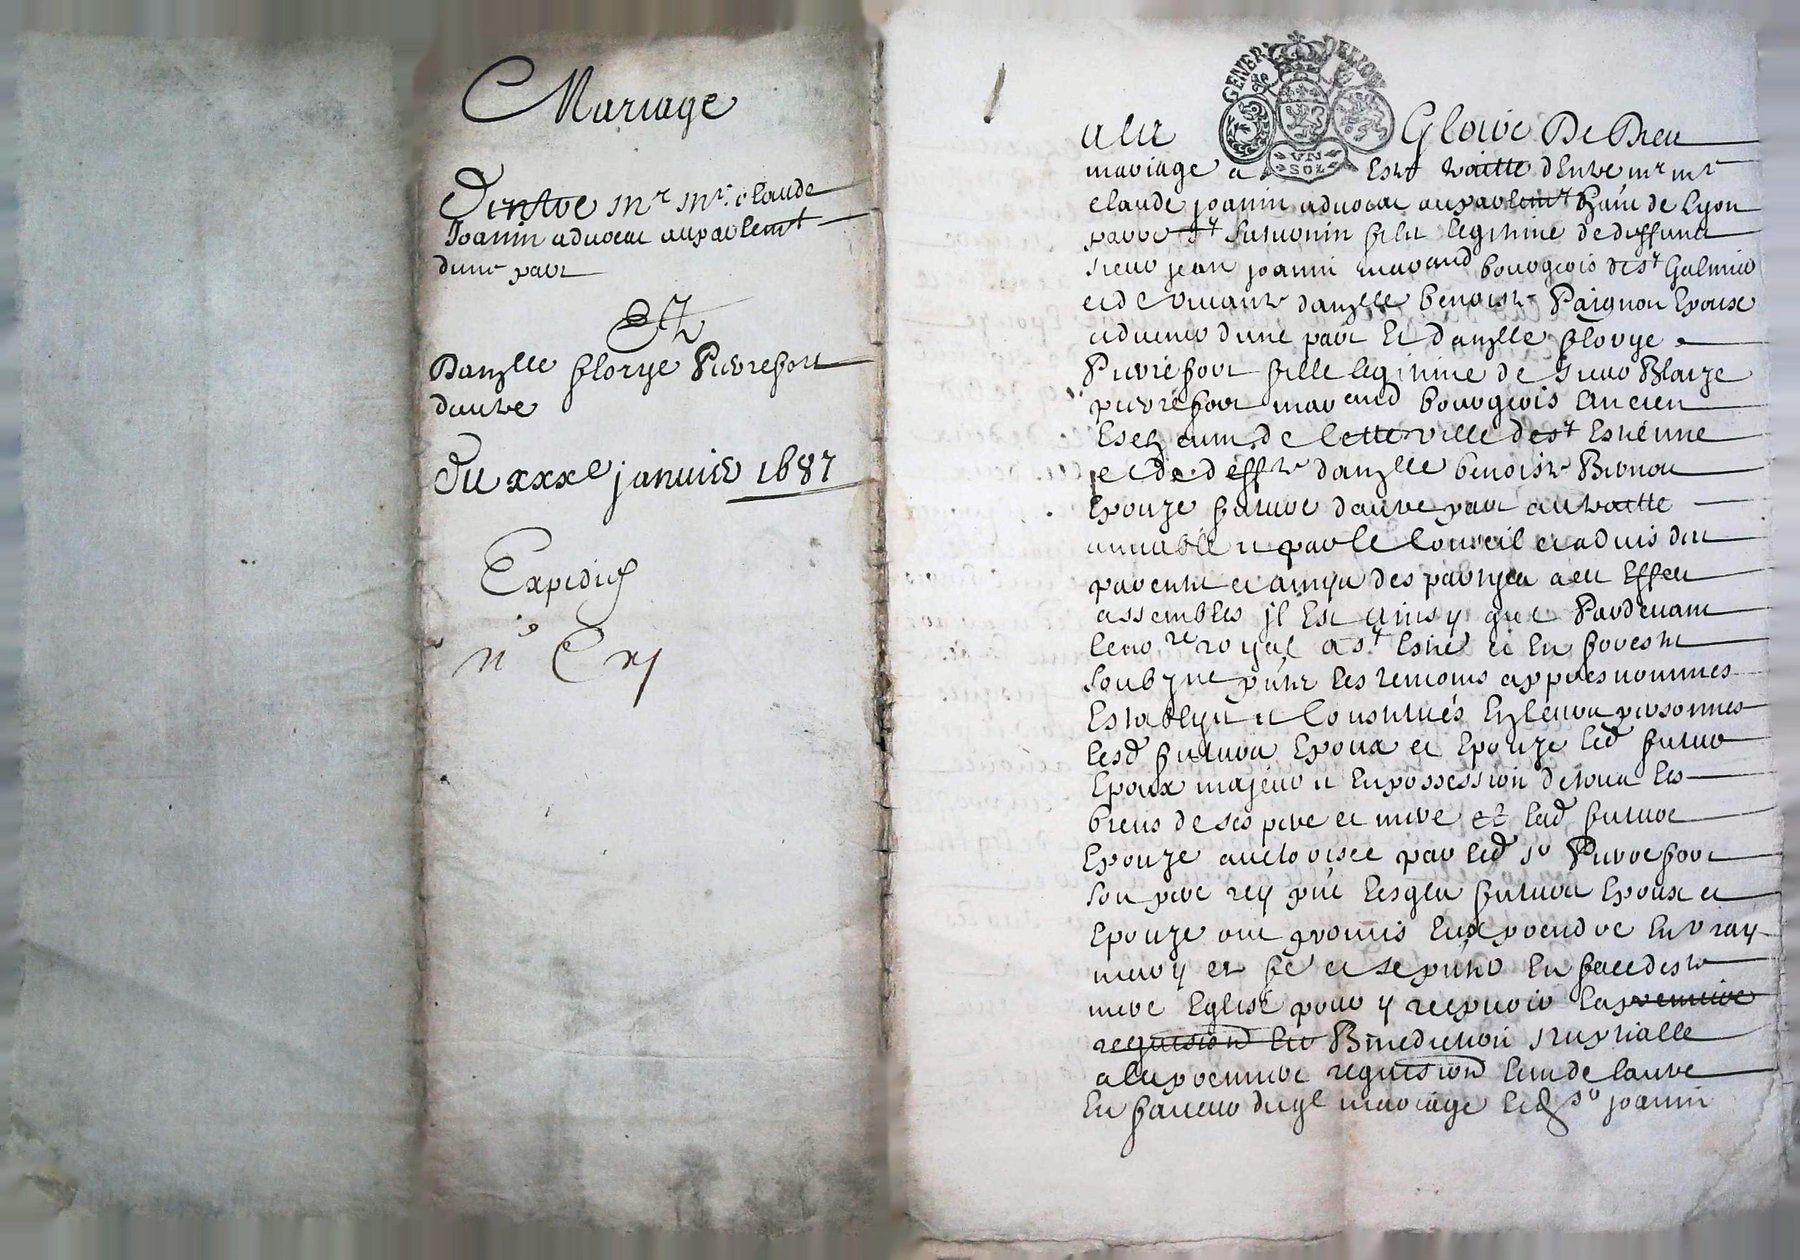 Mariage
D'entre mr mr. claude
Joanin aduocat au parlemt
dune part
Et
Damzlle florye Pierrefort
dautre
Du xxxe januier 1687
Expedié
n° Cxj
GENER DE LION
VN
SOL
A la Gloire De Dieu
mariage a Este traitte dEntre mr mr
claude joanin aduocat au parlemt de Lyon
futur legitime de deffunct
sieur jean joanin marcand bourgeois de st Galmier
et de viuante damzlle benoiste Paignon Epoux
aduenir dune part Et damzlle florye
Pierrefort fille legitime de sieur Blaize
pierrefort marcand bourgeois Ancien
Escheuin de Cette ville de st Estienne
et de deffte damzlle benoiste Brenon
Epouze future dautre part au traitte
amiable et par le Conseil et aduis des
parents et amys des partyes a cet Effect
assemblés jl Est Ainsy que Pardeuant
le nore royal a st Estne et En forests
soubzne pnts les temoins apres nommes
Establys et Constitués En leurs personnes
lesd futurs Epoux et Epouze led futur
Epoux majeur et En possession de tous les
biens de ses pere et mere et lad future
Epouze auctorisee par led sr Pierrefort
son pere icy pnt Lesquels futurs Epoux et
Epouze ont promis En prendre En vray
mary et fe et se pnter En face de ste
mere Eglise pour y recepuoir La premiere
requisition En Benediction Nuptialle
a la premiere requisition Lun de Lautre
En faueur duql mariage led sr joanin